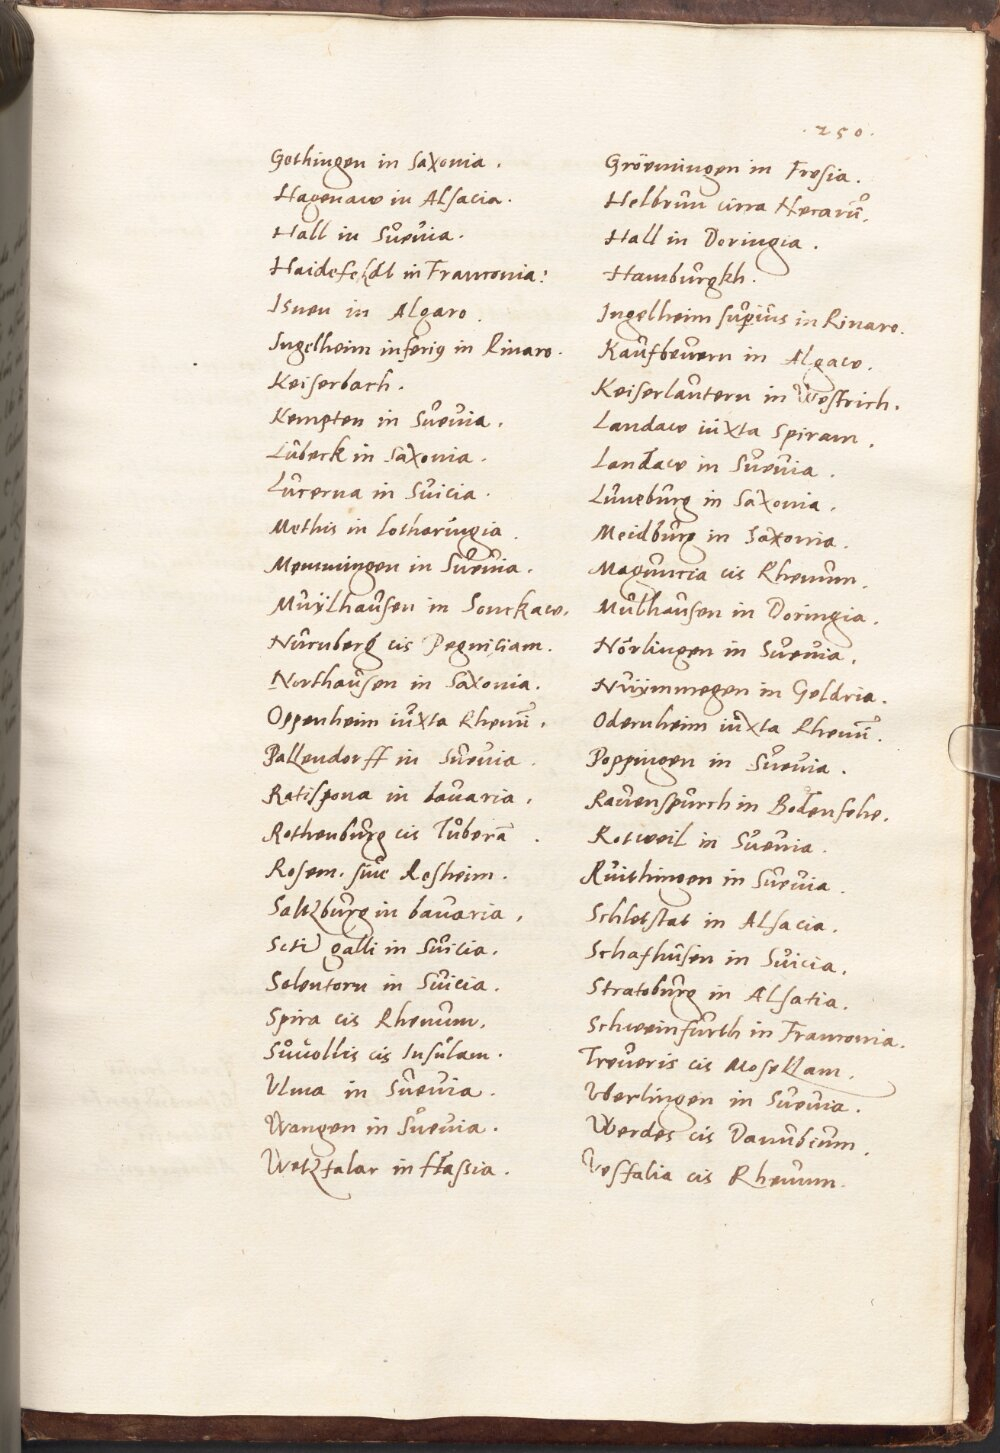 .250.
Gothingen in Saxonia.
Hagenaw in Alsacia.
Hall in Suevia.
Haidefeldt in Franconia:
Isneu in Algaro.
Ingelheim inferius in Rinaro.
Keiserbach.
Kempten in Suevia.
Lubeck in Saxonia.
Lucerna in Suicia.
Methis in Lotharingia.
Memmingen in Suevia.
Muylhausen in Sonckaw.
Nurnberg cis Pegniciam.
Northausen in Saxonia.
Oppenheim iuxta Rhenū.
Pallendorff in Suevia.
Ratispona in bavaria.
Rothenburg cis Tuberā.
Rosem. sive Resheim.
Saltzburg in bavaria.
Scti galli in Suicia.
Solentorn in Suicia.
Spira cis Rhenum.
Suvollis cis Insulam.
Vlma in Suevia.
Wangen in Suevia.
Wetzfalar in Hassia.
Gröeningen in Fresia.
Helbrun circa Necarū.
Hall in Doringia.
Hamburgkh.
Ingelheim superius in Rinaro.
Kaufbevern in Algaw.
Keiserlautern in Westrich.
Landaw iuxta Spiram.
Landaw in Suevia.
Luneburg in Saxonia.
Meidburg in Saxonia.
Maguncia cis Rhenum.
Mulhausen in Doringia.
Nörlingen in Suevia.
Nuymmegen in Geldria.
Odernheim iuxta Rhenū.
Poppingen in Suevia.
Ravenspurch in Bodensehe.
Rotweil in Suevia.
Ruithingen in Suevia.
Schletstat in Alsacia.
Schafhusen in Suicia.
Stratoburg in Alsatia.
Schweinfurth in Franconia.
Treveris cis Mosellam.
Vberlingen in Suevia.
Werdes cis Danubium.
Vesfalia cis Rhenum.